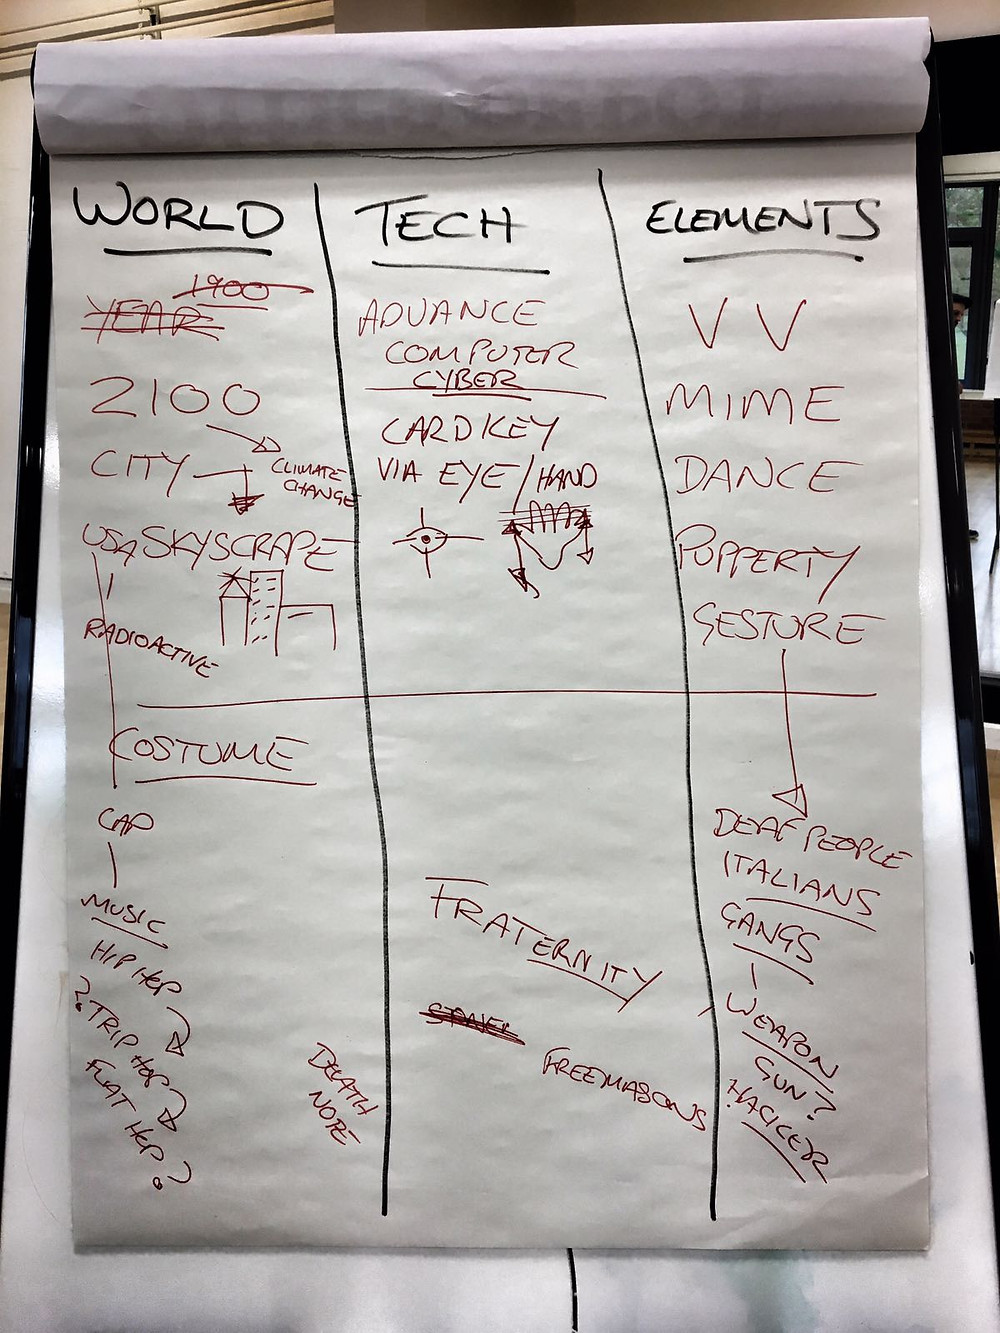 WORLD
1900
YEAR
2100
CITY
CLIMATE
CHANGE
USA SKYSCRAPE
RADIOACTIVE
COSTUME
CAP
MUSIC
HIP HOP
? TRIP HOP
FLAT HOP ?
DEATH
NOTE
TECH
ADVANCE
COMPUTER
CYBER
CARD KEY
VIA EYE / HAND
FRATERNITY
FREEMASONS
ELEMENTS
V V
MIME
DANCE
PUPPERTY
GESTURE
DEAF PEOPLE
ITALIANS
GANGS
WEAPON
GUN?
HACKER